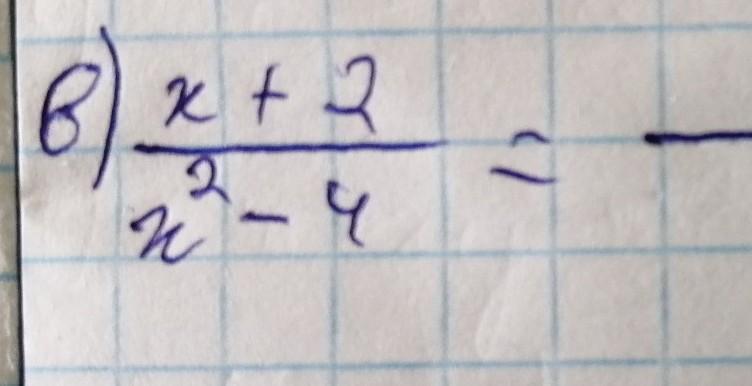 в) x + 2
x² - 4 = —